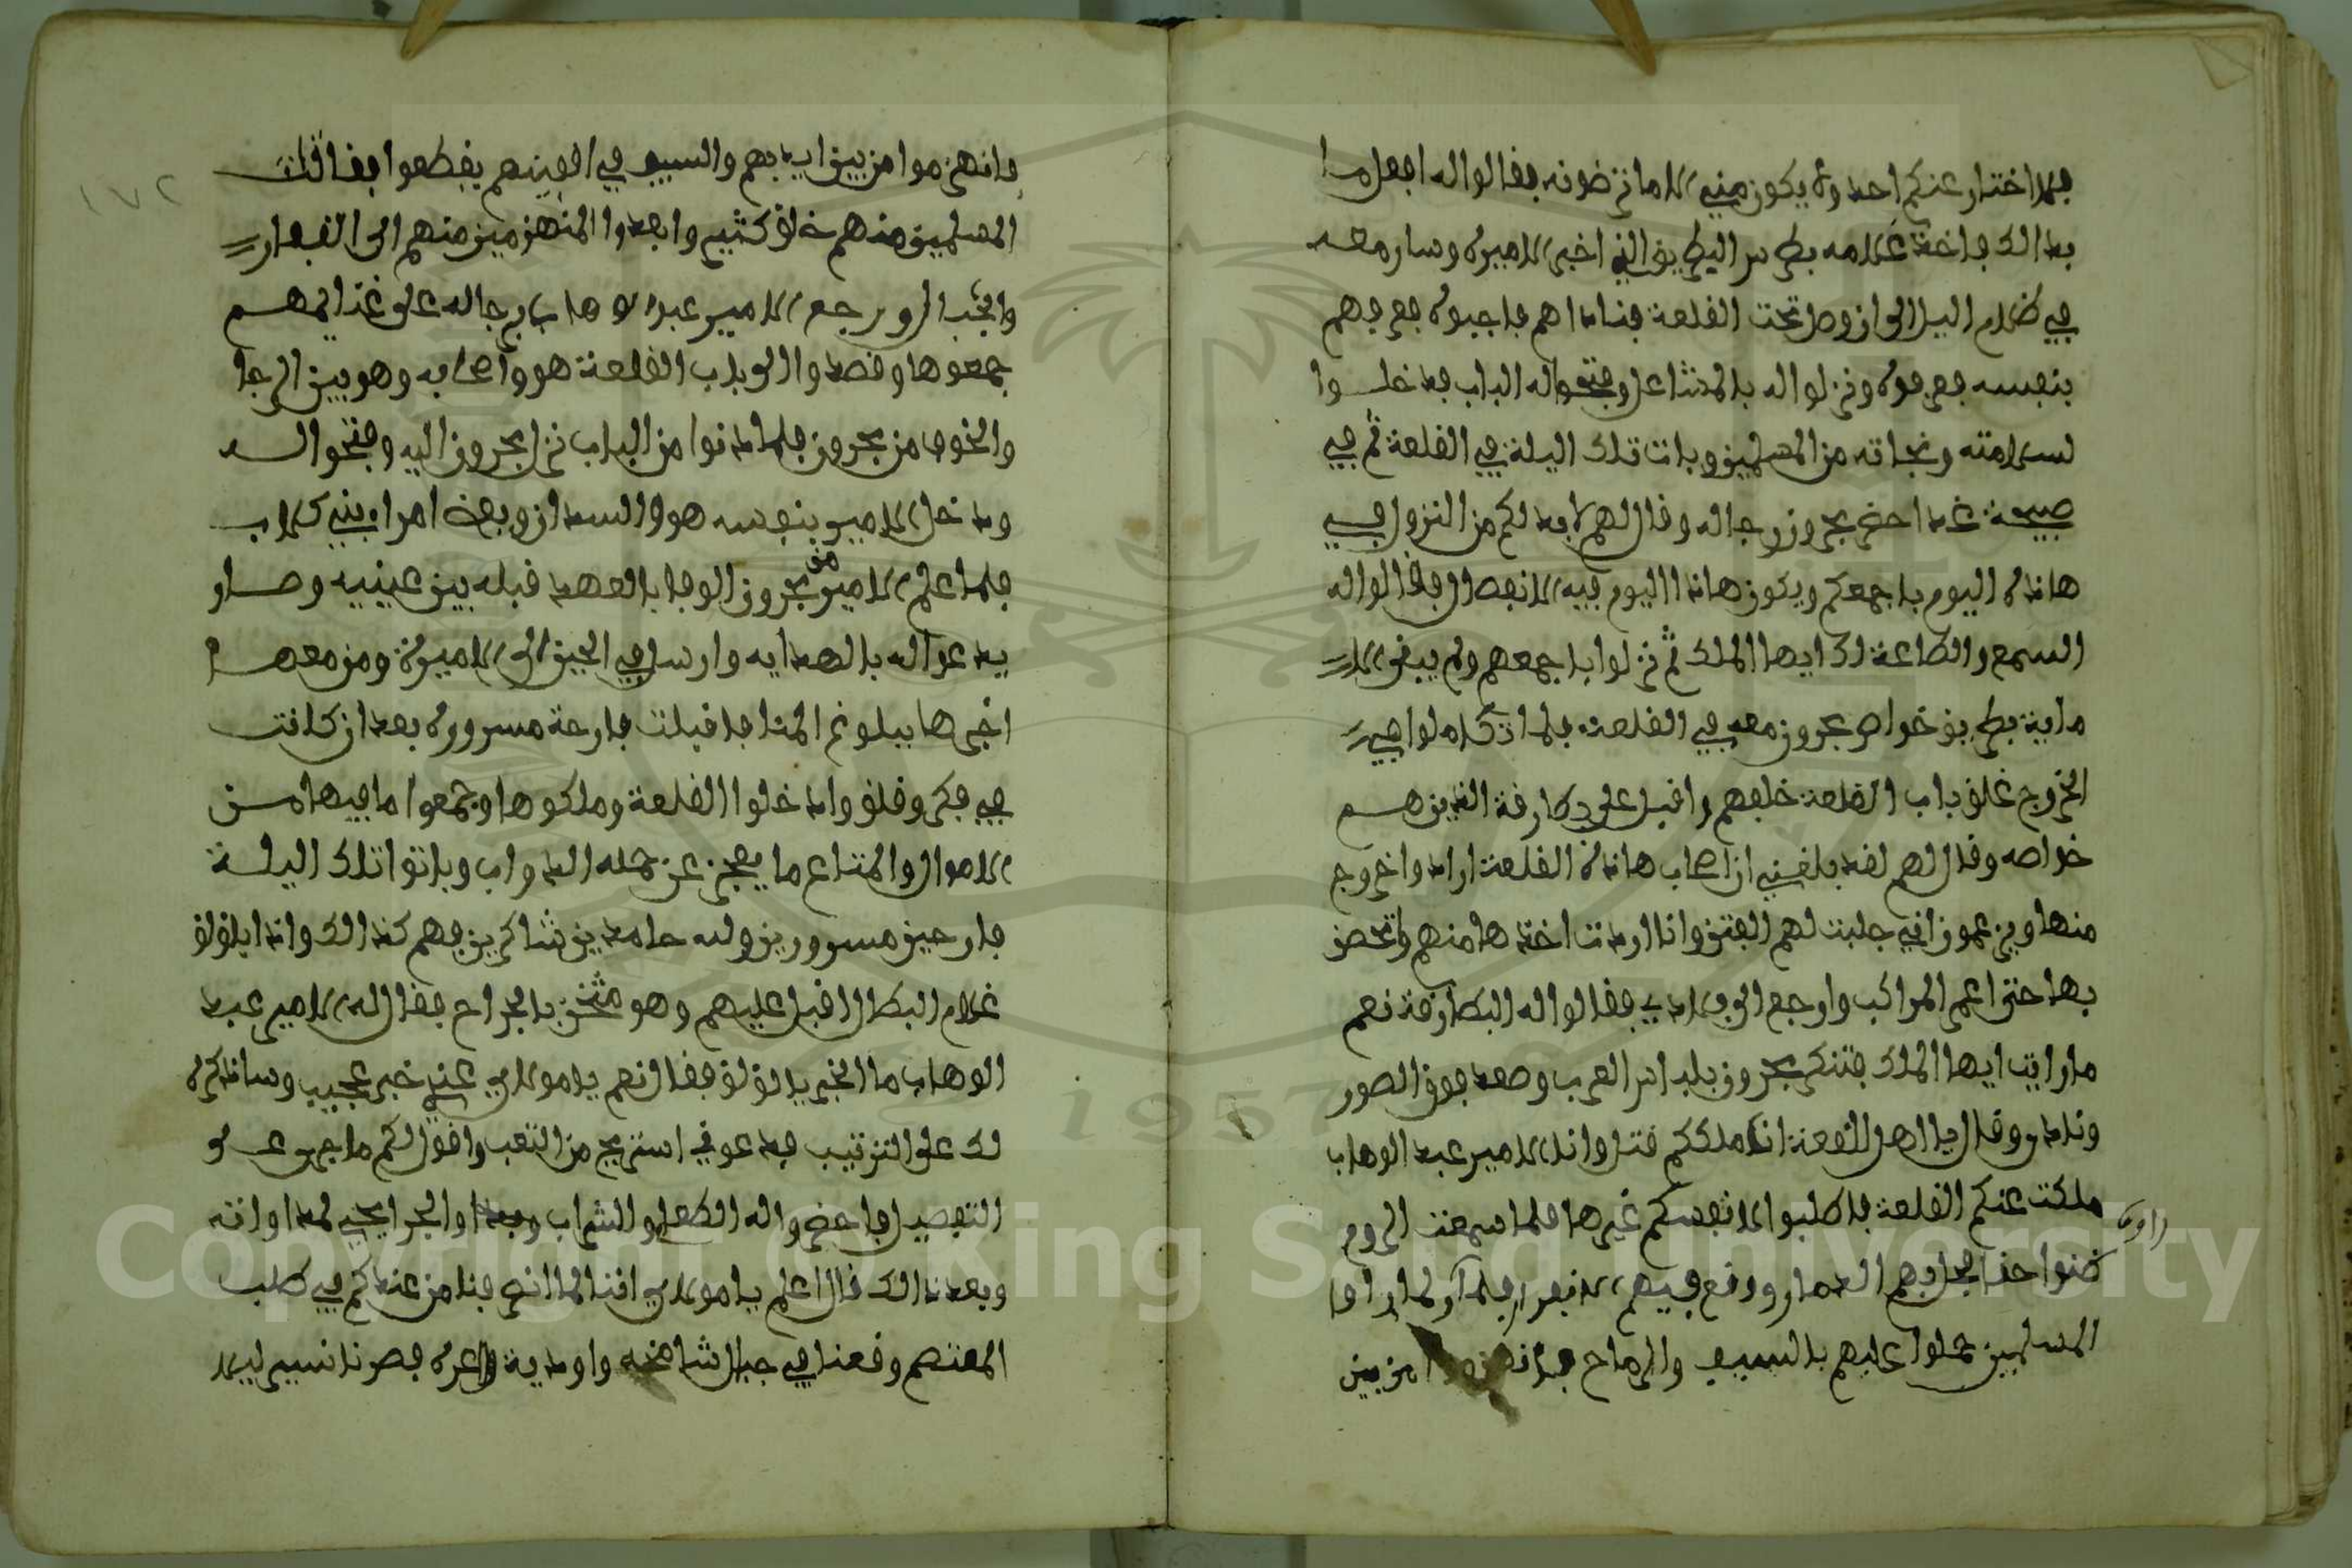 فلا اختار عنكم احد ولا يكون مني الا ما ترضونه فقالوا له افعل ما
بدالك فاخذ غلامه بطرس البطريق الذي اخبر الاميرة وسار معه
في ظلام اليل الى ان وصل تحت القلعة فناداهم فاجبوه فعرفهم
بنفسه فعرفوه ونزلوا له بالمشاعل وفتحوا له الباب فدخلوا
لسلامته ونجاته من المسلمين وبات تلك اليلة في القلعة ثم في
صبيحة غد احضر بحرون رجاله وقال لهم لابد لكم من النزول في
هاذه اليوم باجمعكم ويكون هاذا اليوم فيه الانفصال فقالوا له
السمع والطاعة لك ايها الملك ثم نزلوا باجمعهم ولم يبقى الا
ماية بطريق خواص بحرون معه في القلعة فلما تكاملوا في
الخروج غلق باب القلعة خلفهم واقبل على بطارقة الذين هم
خواصه وقال لهم لقد بلغني ان اصحاب هاذه القلعة ارادوا خروج
منها ويزعمون اني جلبت لهم الفتن وانا اردت اخذها منهم واتحصن
بها حتى اعمر المراكب وارجع الى بلادي فقالوا له البطارقة نعم
ما رايت ايها الملك فتنكر بحرون بلباس العرب وصعد فوق الصور
ونادى وقال يا اهل القلعة ان ملككم قتل وانا الامير عبد الوهاب
ملكت عنكم القلعة فاطلبوا لانفسكم غيرها فلما سمعت الروم
ظنوا حذا بحرابهم الدمار ووقع فيهم الانبهار فلما راوا
راوه
المسلمين حملوا عليهم بالسيف والرماح فانهزموا من بين
فانهزموا من بين ايديهم والسيف في اقفيتهم يقطعوا فقاتلت
المسلمين منهم خلق كثير وابعدوا المنهزمين منهم الى القفار
والجبال ورجع الامير عبد الوهاب برجاله على غنايمهم
جمعوها وقصدوا الى باب القلعة هو واصحابه وهو بين الرجا
والخوف من بحرون فلما دنوا من الباب نزل بحرون اليه وفتحوا له
ودخل الامير بنفسه هو والسودان وبعض امراء بني كلاب
فلما علم الامير من بحرون الوفا بالعهد قبله بين عينيه وصار
يدعوا له بالهداية وارسل في الحين الى الاميرة ومن معها
اخبرها ببلوغ المنا فاقبلت فارحة مسرورة بعد ان كانت
في فكر وقلق وادخلوا القلعة وملكوها وجمعوا ما فيها من
الاموال والمتاع ما يعجز عن حمله الدواب وباتوا تلك اليلة
فارحين مسرورين ولله حامدين شاكرين فهم كذالك واذا بلؤلؤ
غلام البطال اقبل عليهم وهو مثخن بالجراح فقال له الامير عبد
الوهاب ما الخبر يا لؤلؤ فقال نعم يا مولاي عندي خبر عجيب وساذكره
لك على الترتيب فدعوني استريح من التعب واقول لكم ما جرى على
التفصيل فاحضروا له الطعام والشراب والجرايحي لمداواته
وبعد ذالك قال اعلم يا مولاي اننا لما انصرفنا من عندكم في طلب
المعتصم وقعنا في جبال شامخة واودية واعره فصرنا نسير ليلا
١٧٢